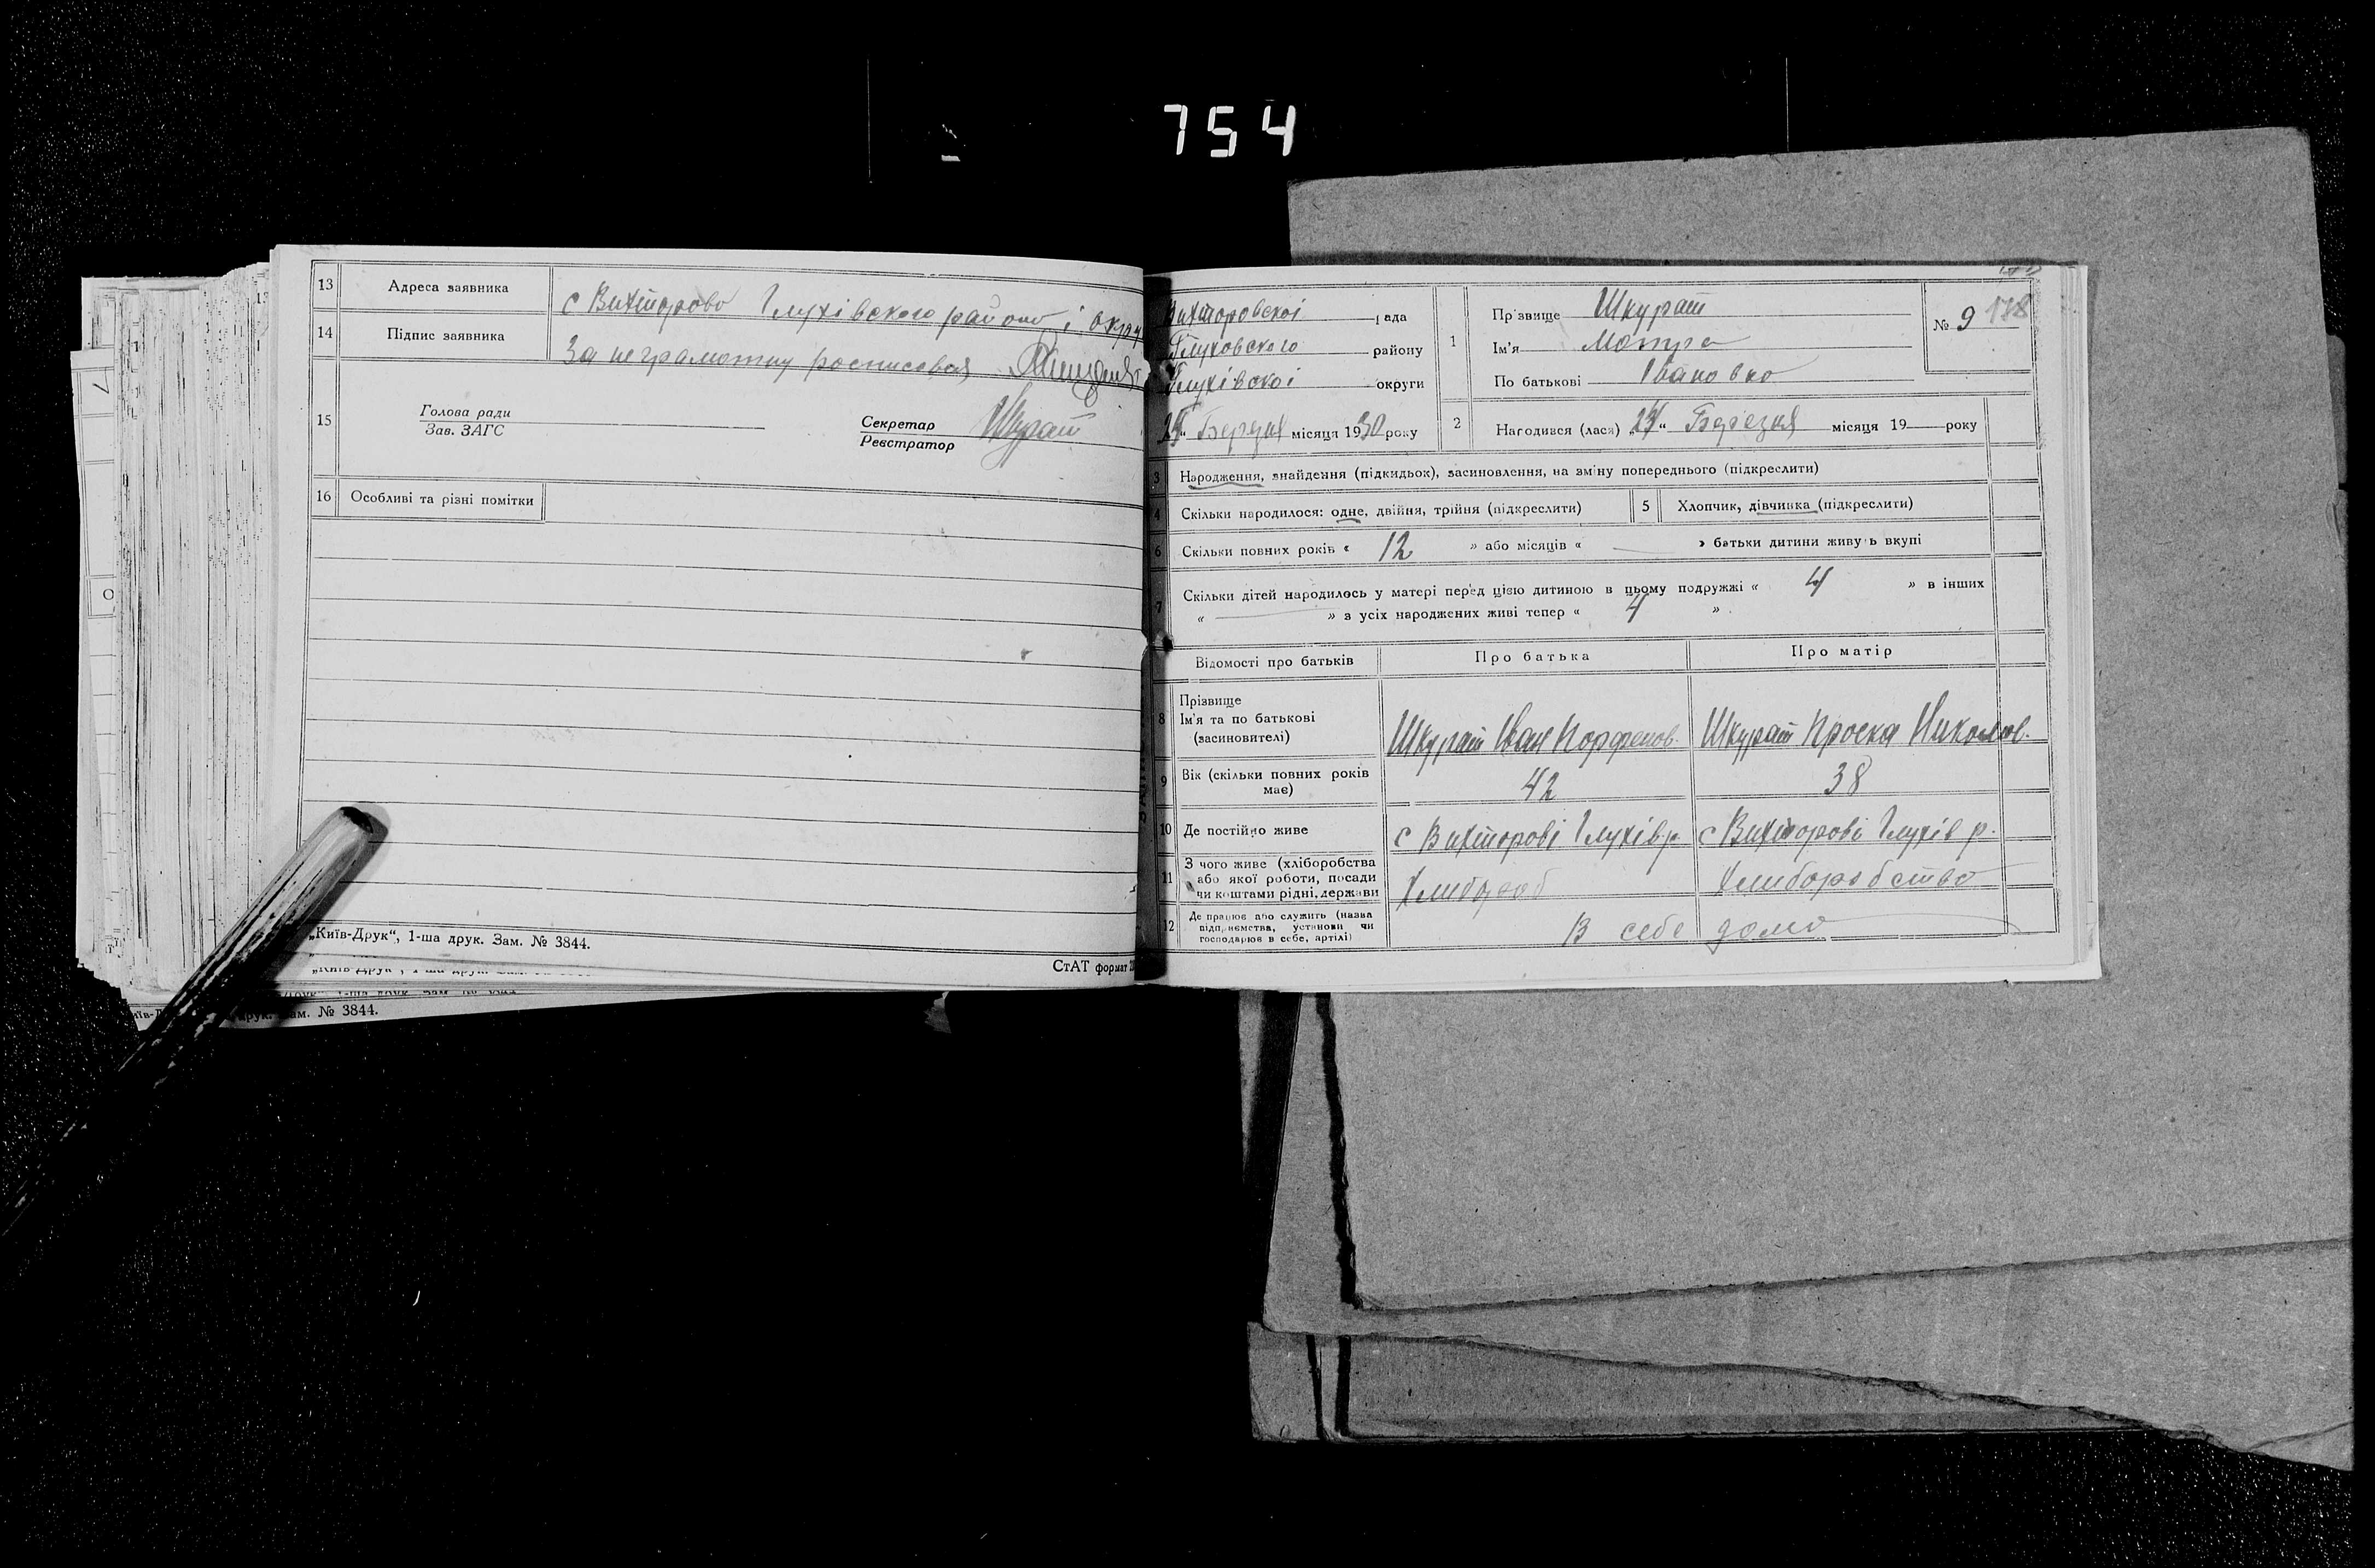 754
13 Адреса заявника с Вихторово Глухівского району і окру
14 Підпис заявника За неграмотну росписовся
15 Голова ради
Зав. ЗАГС
Секретар Шкурат
Реєстратор
16 Особливі та різні помітки
„Київ-Друк“, 1-ша друк. Зам. № 3844.
СтАТ формат
друк. Зам. № 3844.
Вихторовскої рада
Глуховского району
Глухівскої округи
Березня місяця 1930 року
1 Прізвище Шкурат
Ім'я Мотра
По батькові Івановно
№ 9 178
2 Народився (лася) „ “ Березня місяця 19 року
3 Народження, знайдення (підкидьок), засиновлення, на зміну попереднього (підкреслити)
4 Скільки народилося: одне, двійня, трійня (підкреслити) 5 Хлопчик, дівчинка (підкреслити)
6 Скільки повних років « 12 » або місяців « » батьки дитини живуть вкупі
7 Скільки дітей народилось у матері перед цією дитиною в цьому подружжі « 4 » в інших
« » з усіх народжених живі тепер « 4 ».
Відомості про батьків Про батька Про матір
8 Прізвище
Ім'я та по батькові
(засиновителі) Шкурат Іван Порфенов. Шкурат Проска Николов.
9 Вік (скільки повних років
має) 42 38
10 Де постійно живе с Вихторові Глухів р. с Вихторові Глухів р.
11 З чого живе (хліборобства
або якої роботи, посади
чи коштами рідні, держави Хлибороб Хлиборобство
12 Де працює або служить (назва
підприємства, установи чи
господарює в себе, артілі) В себе дома